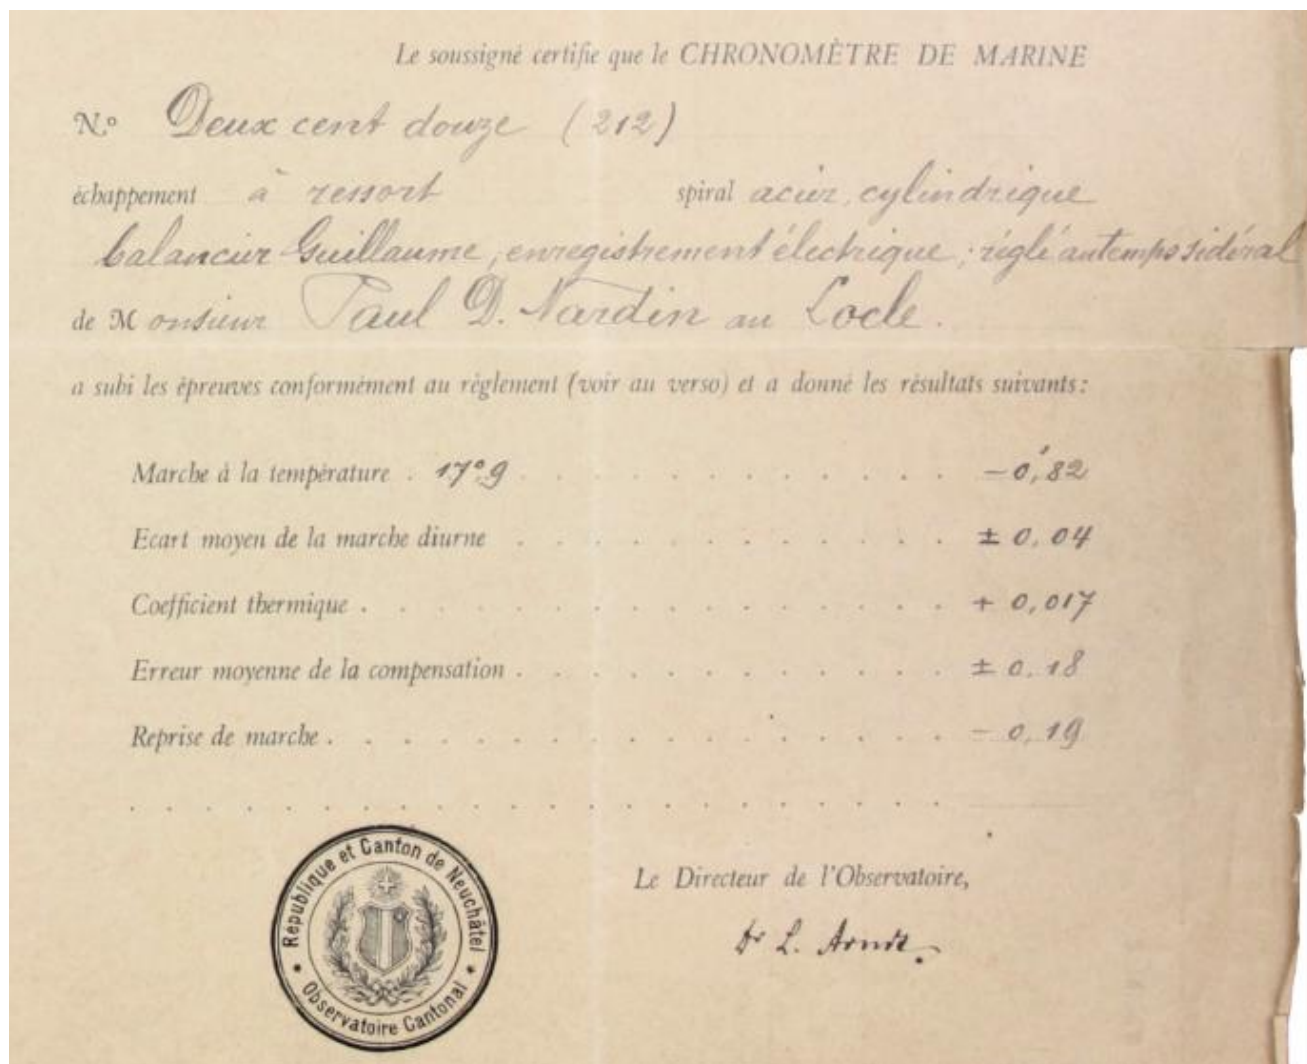 Le soussigné certifie que le CHRONOMÈTRE DE MARINE
N.º Deux cent douze (212)
échappement à ressort spiral acier, cylindrique
balancier Guillaume, enregistrement électrique; réglé au temps sidéral
de Monsieur Paul D. Nardin au Locle.
a subi les épreuves conformément au règlement (voir au verso) et a donné les résultats suivants:
Marche à la température . 17º,9 . . . . . . . . . . . . −0,ˢ82
Ecart moyen de la marche diurne . . . . . . . . . . . . ± 0,04
Coefficient thermique . . . . . . . . . . . . . . . + 0,017
Erreur moyenne de la compensation . . . . . . . . . . . . ± 0,18
Reprise de marche . . . . . . . . . . . . . . . . − 0,19
République et Canton de Neuchâtel
• Observatoire Cantonal •
Le Directeur de l'Observatoire,
Dr L. Arndt.